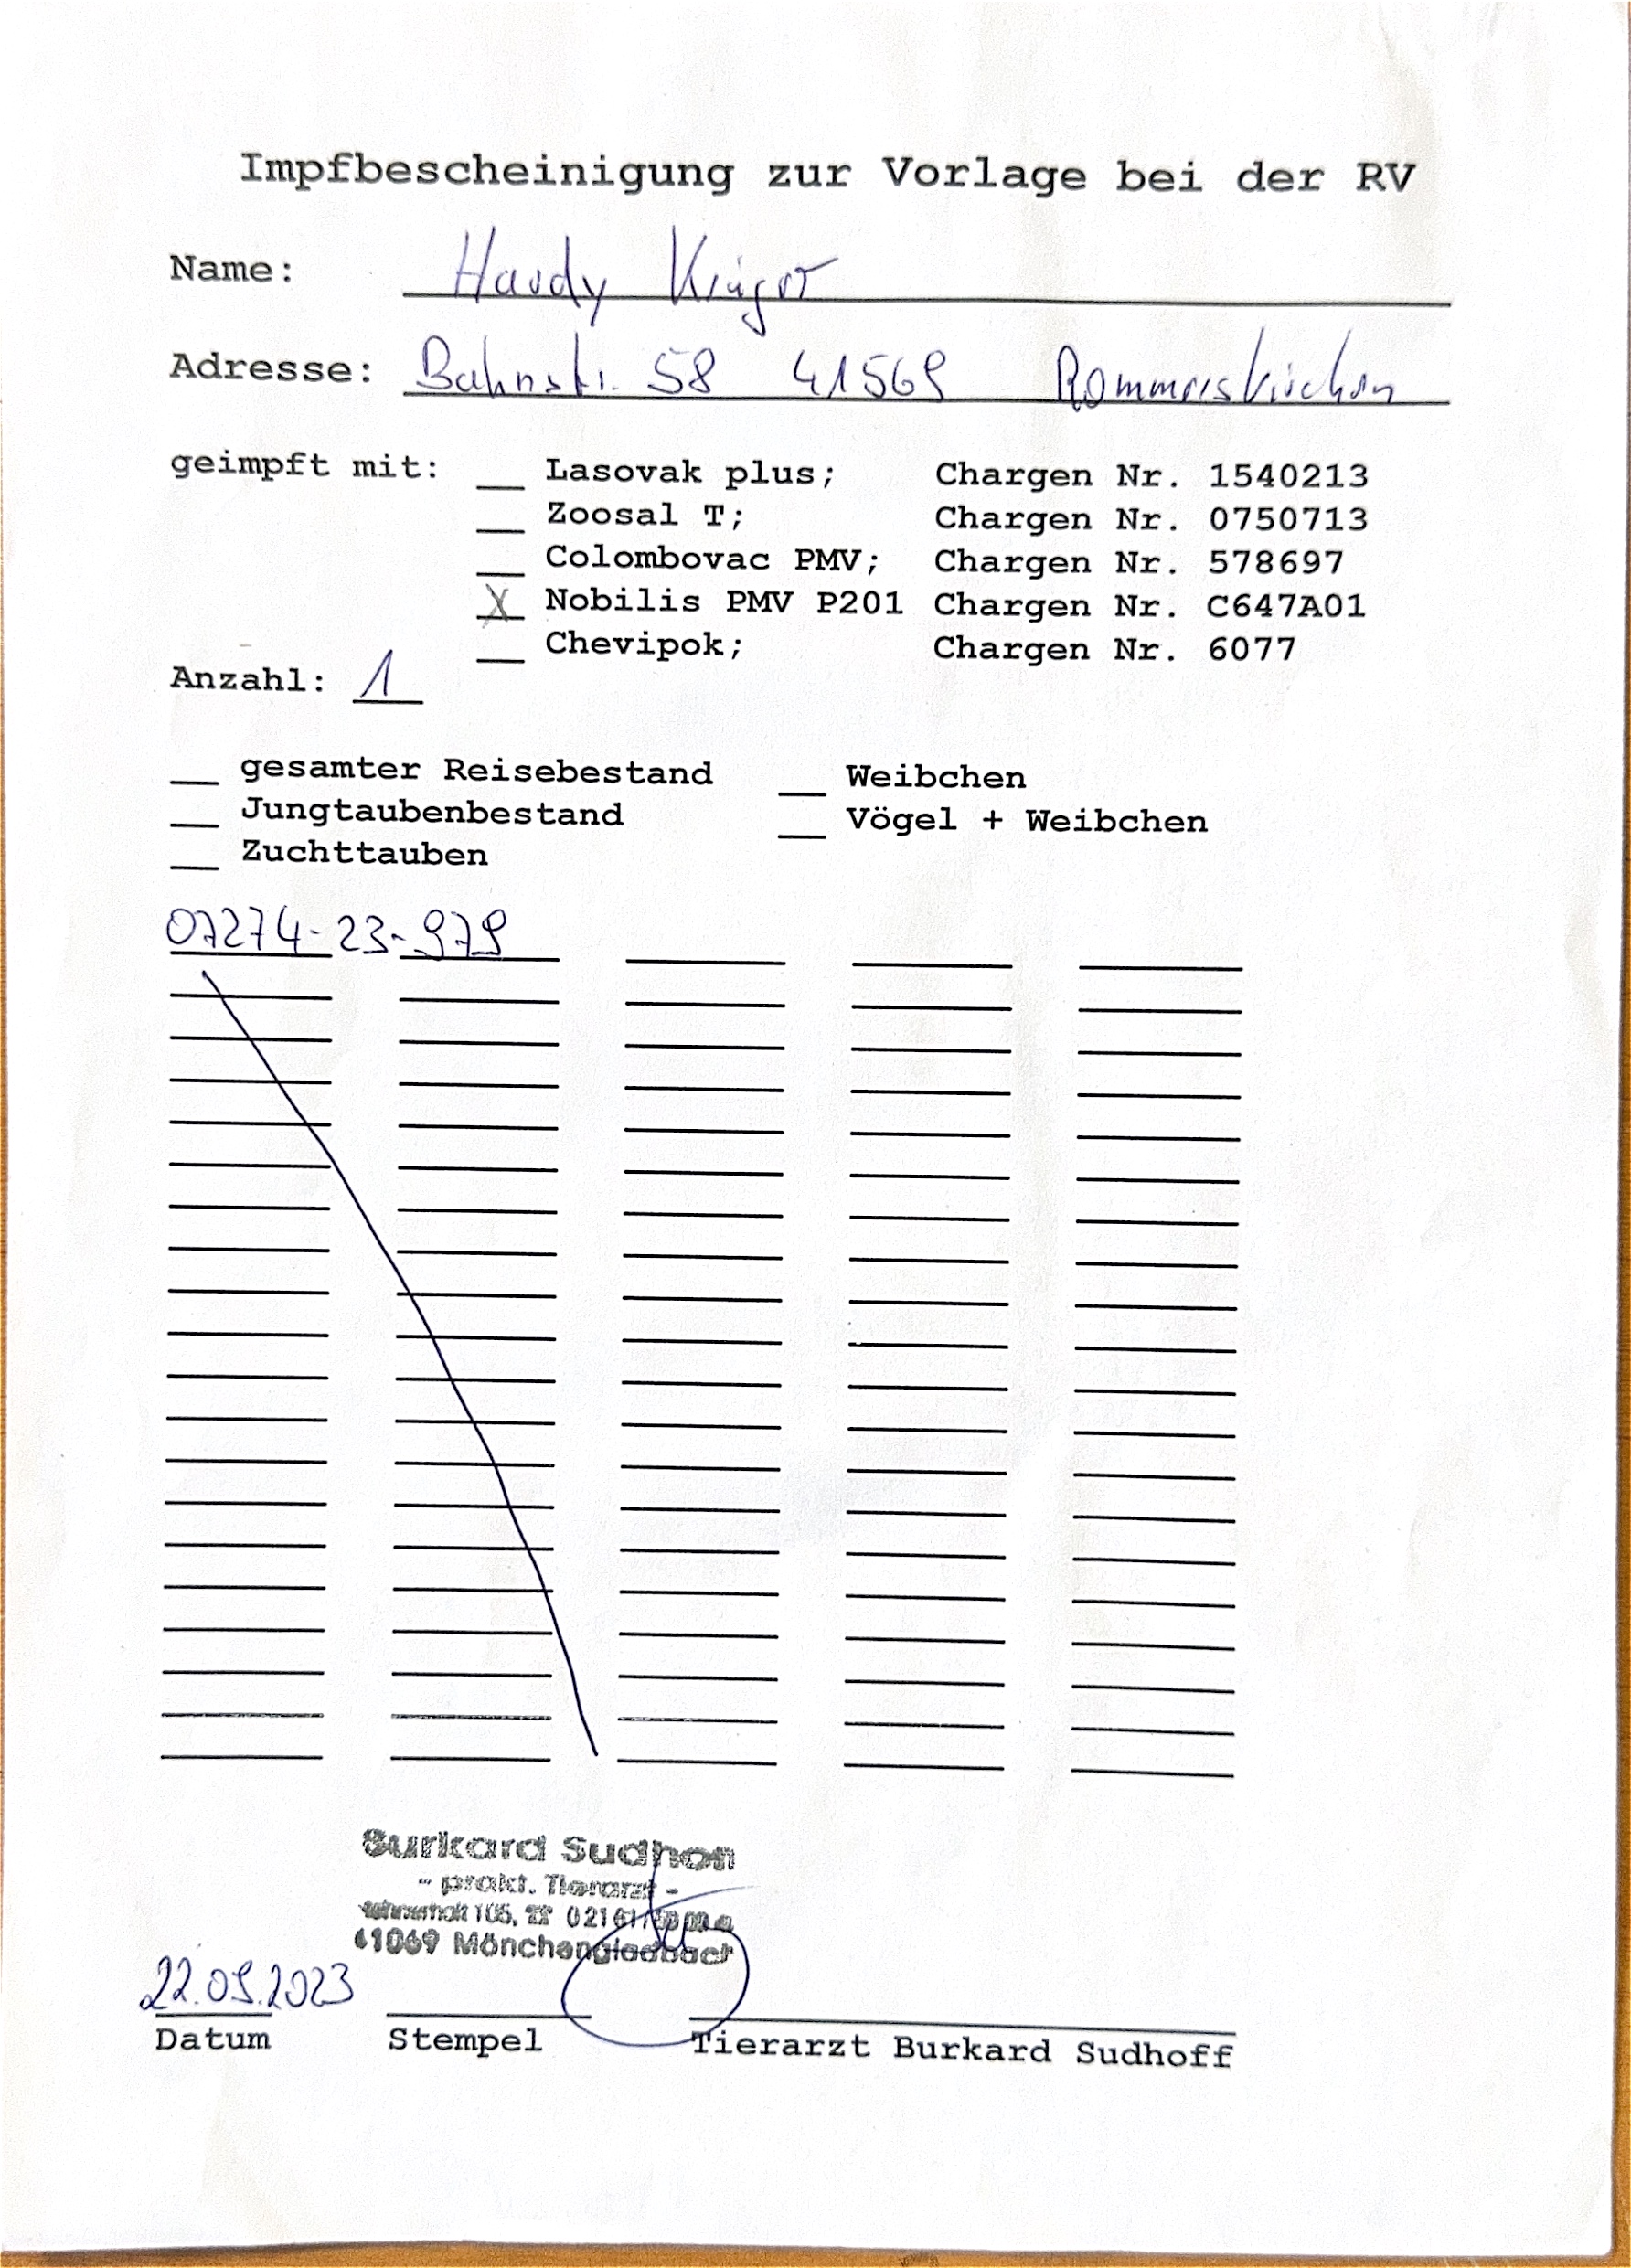 Impfbescheinigung zur Vorlage bei der RV
Name: Hardy Krüger
Adresse: Bahnstr. 58 41569 Rommerskirchen
geimpft mit: __ Lasovak plus; Chargen Nr. 1540213
__ Zoosal T; Chargen Nr. 0750713
__ Colombovac PMV; Chargen Nr. 578697
X Nobilis PMV P201 Chargen Nr. C647A01
__ Chevipok; Chargen Nr. 6077
Anzahl: 1
__ gesamter Reisebestand __ Weibchen
__ Jungtaubenbestand __ Vögel + Weibchen
__ Zuchttauben
07274-23-979
Burkard Sudhoff
- prakt. Tierarzt -
105, ☎ 02161
41069 Mönchengladbach
22.09.2023
Datum Stempel Tierarzt Burkard Sudhoff